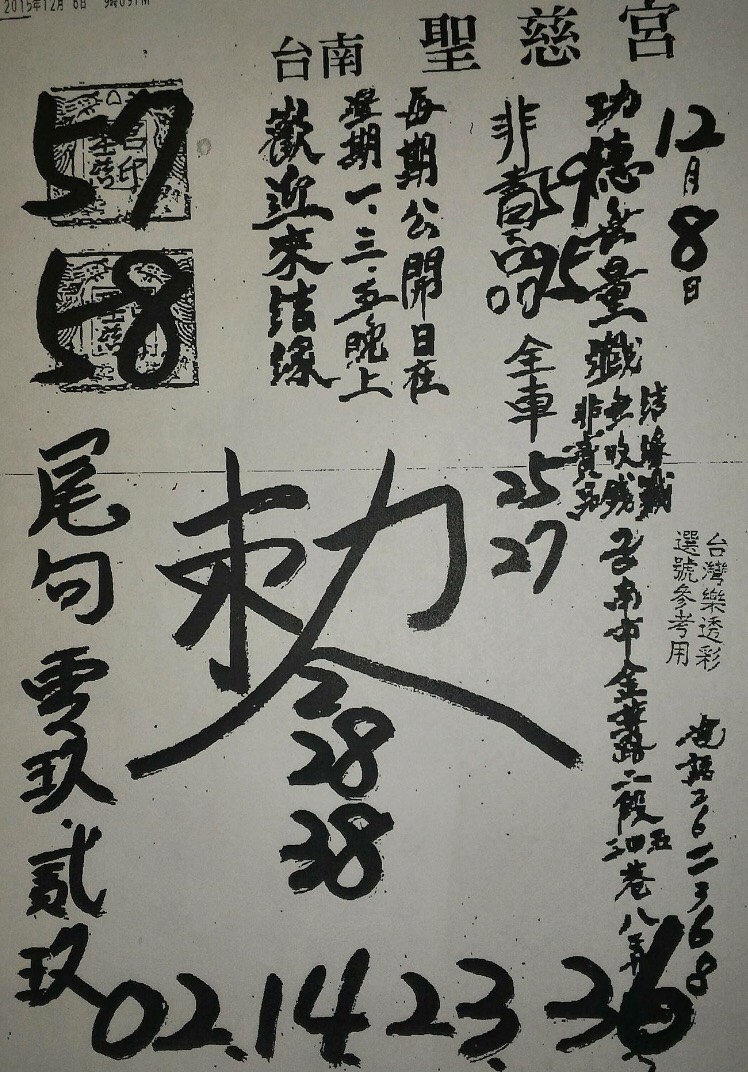 2015年12月 6日
台南 聖慈宮
12月8日
功德無量
結緣
無收錢
非賣品
非賣品
59
95
全車
25
27
每期公開日在
星期一、三、五晚上
歡迎來結緣
57
58
台灣樂透彩
選號參考用
台南市金華路二段
巷八弄
電話2622368
敕
2
28
38
尾句 零玖.貳玖
02.14.23.36